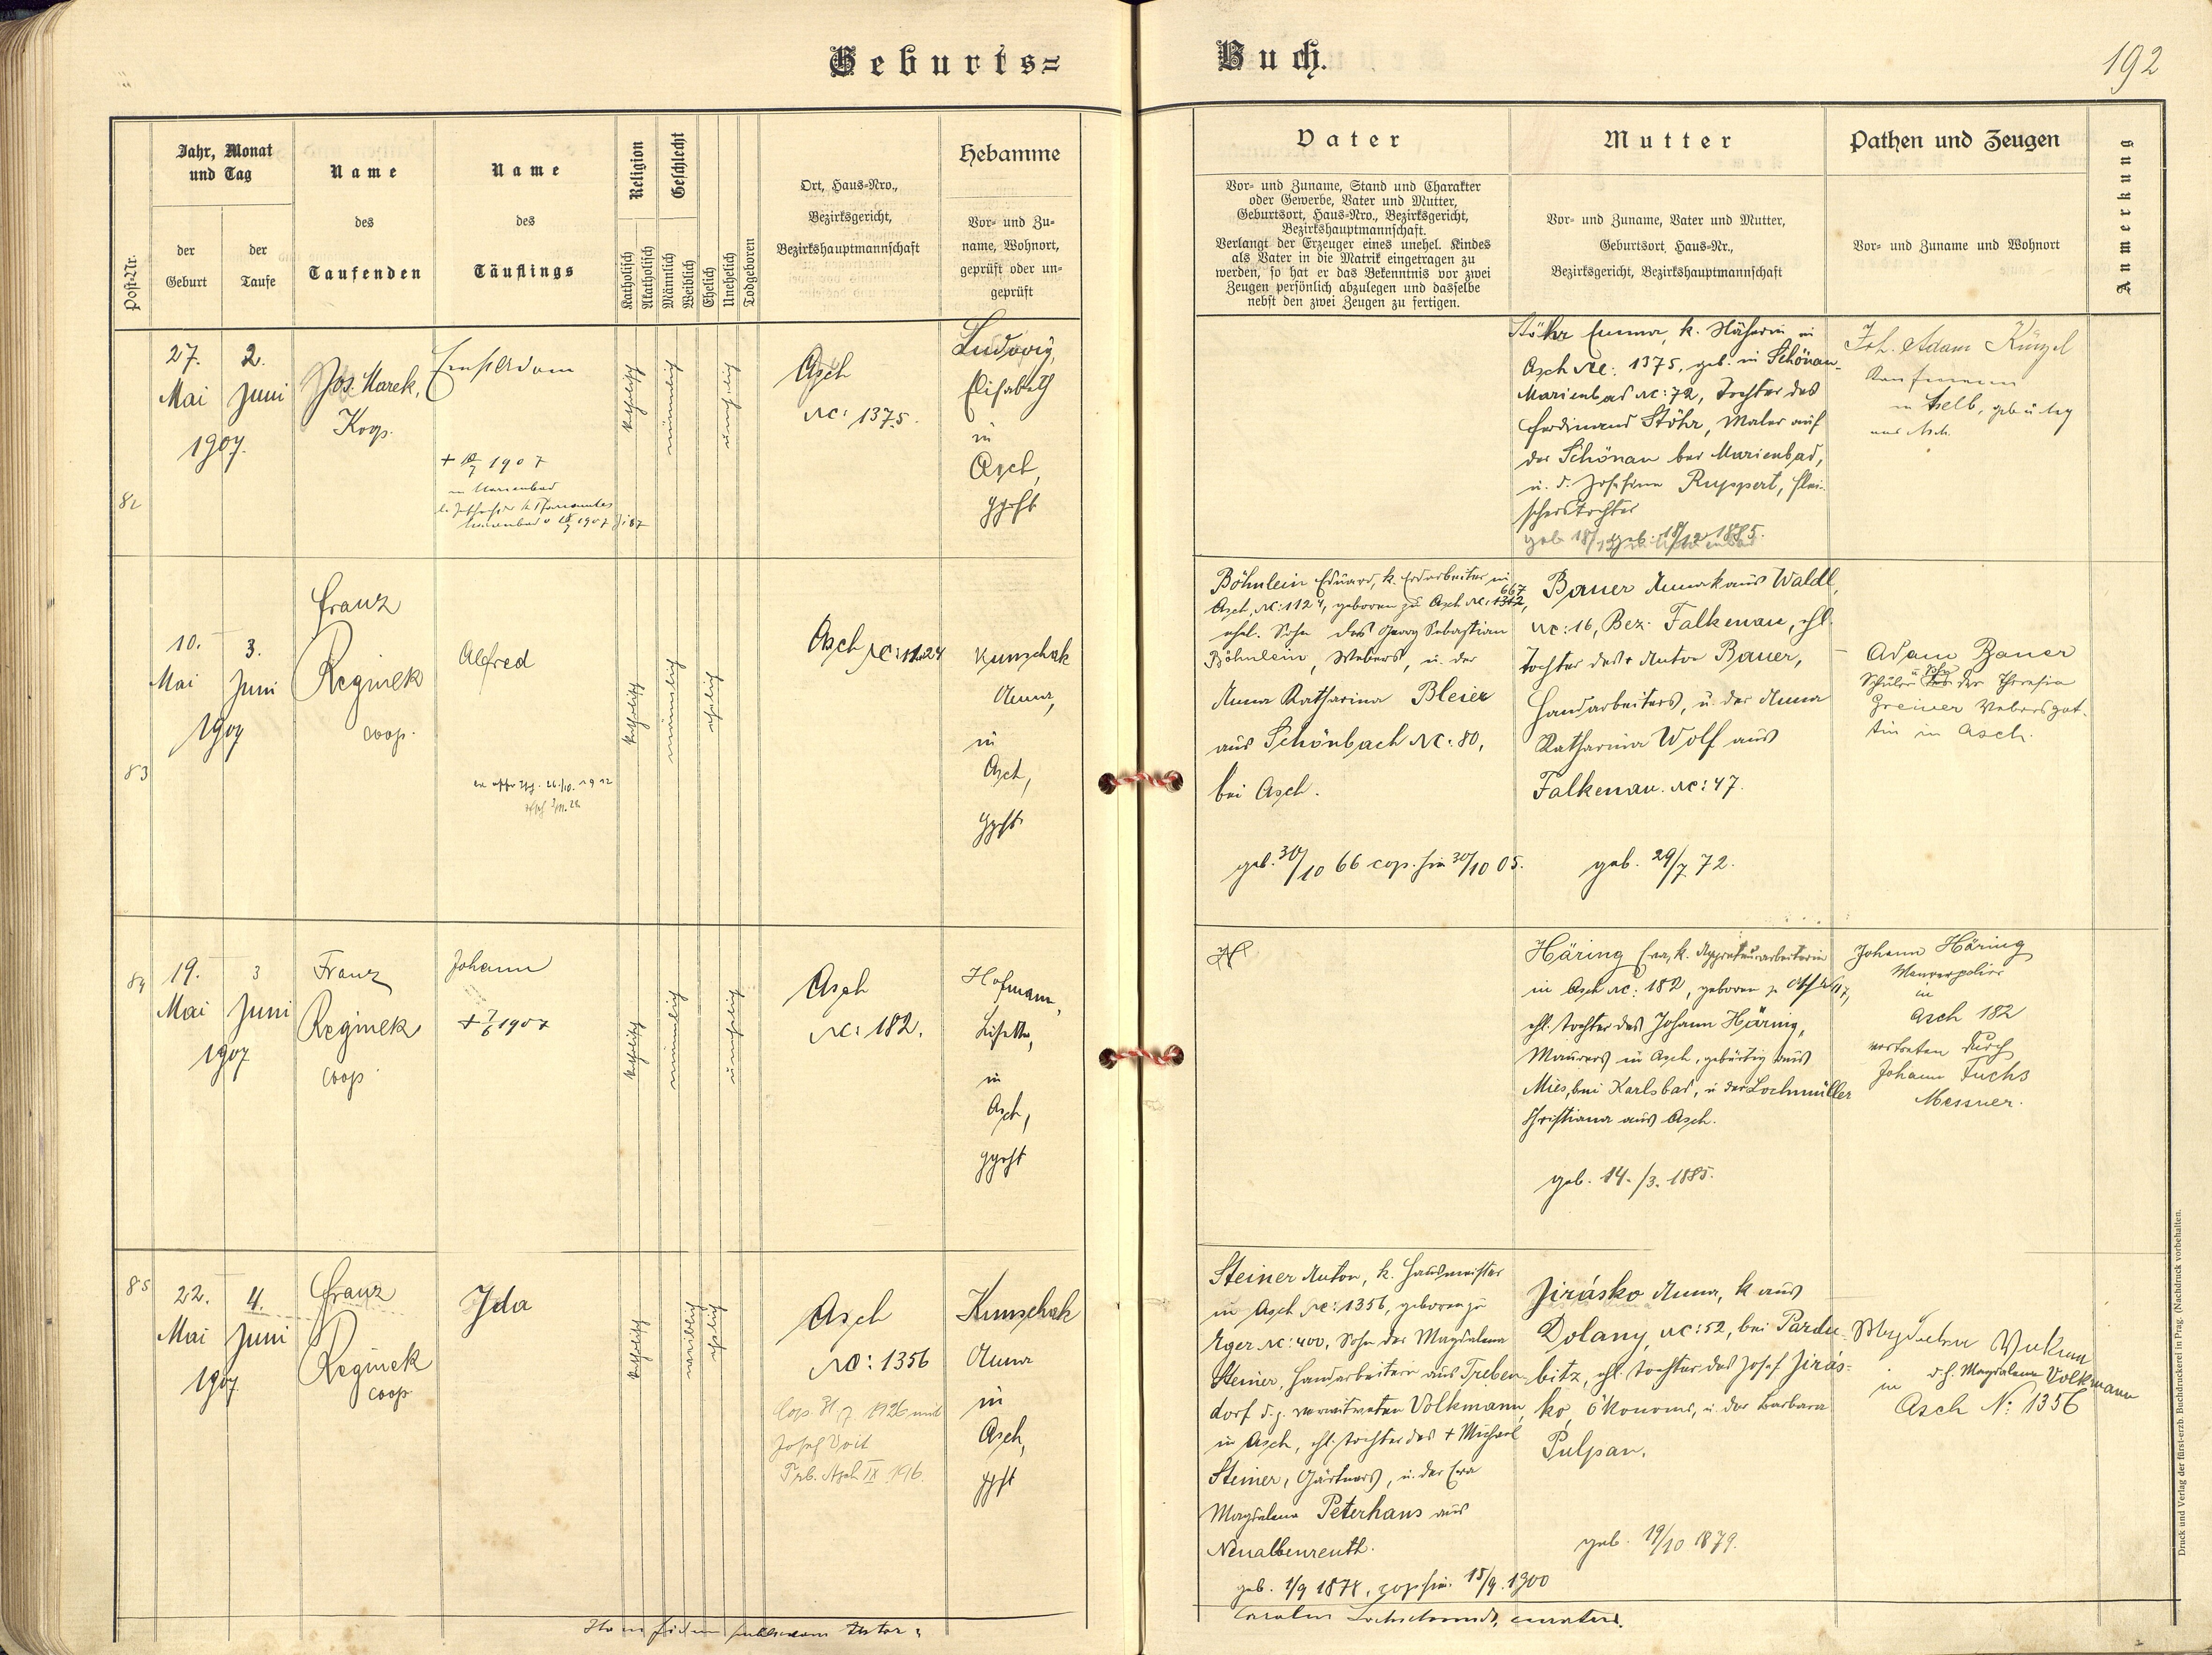 Geburts=
Buch.
192
Post-Nr.
Jahr, Monat
und Tag
der
Geburt
der
Taufe
Name
des
Taufenden
Name
des
Täuflings
Religion
Katholisch
Akatholisch
Geschlecht
Männlich
Weiblich
Ehelich
Unehelich
Todgeboren
Ort, Haus=Nro.,
Bezirksgericht,
Bezirkshauptmannschaft
Hebamme
Vor= und Zu=
name, Wohnort,
geprüft oder un=
geprüft
Vater
Vor= und Zuname, Stand und Charakter
oder Gewerbe, Vater und Mutter,
Geburtsort, Haus=Nro., Bezirksgericht,
Bezirkshauptmannschaft.
Verlangt der Erzeuger eines unehel. Kindes
als Vater in die Matrik eingetragen zu
werden, so hat er das Bekenntnis vor zwei
Zeugen persönlich abzulegen und dasselbe
nebst den zwei Zeugen zu fertigen.
Mutter
Vor= und Zuname, Vater und Mutter,
Geburtsort, Haus=Nr.,
Bezirksgericht, Bezirkshauptmannschaft
Pathen und Zeugen
Vor= und Zuname und Wohnort
Anmerkung
82
27.
Mai
2.
Juni
1907.
Jos. Marek,
Koop.
Ernst Adam
1907
in Marienbad
katholisch
männlich
unehelich
Asch
NC: 1375.
Ludwig,
Elisabeth
in
Asch,
gprft
Stöhr Emma, k. Näherin in
Asch NC: 1375, geb. in Schönau-
Marienbad NC: 72, Tochter des
Ferdinand Stöhr, Maler auf
der Schönau bei Marienbad,
u. d. Josefine Ruppert, Flei-
scherstochter
geb. 18/12 1885.
Joh. Adam Künzel
Kaufmann
in Selb,
aus Asch.
83
10.
Mai
3.
Juni
1907
Franz
Reginek
coop.
Alfred
26./10. 1912
katholisch
männlich
ehelich
Asch NC: 1124
Kunschak
Anna,
in
Asch,
gprft
Böhnlein Eduard, k. Erdarbeiter in
Asch, NC: 1124, geboren zu Asch NC: 1312, 667
ehel. Sohn des Georg Sebastian
Böhnlein, Webers, u. der
Anna Katharina Bleier
aus Schönbach NC: 80,
bei Asch.
geb. 30/10 66 cop. hier 30/10 05.
Bauer Anna k aus Waldl,
NC: 16, Bez. Falkenau, ehl.
Tochter des + Anton Bauer,
Handarbeiters, u. der Anna
Katharina Wolf aus
Falkenau. NC: 47.
geb. 29/7 72.
Adam Bauer
Schüler u. Sohn der Theresia
Greiner Webersgat-
tin in Asch.
84
19.
Mai
3
Juni
1907
Franz
Reginek
coop
Johann
+ 7/6 1907
katholisch
männlich
unehelich
Asch
NC: 182.
Hofmann,
Lisette,
in
Asch,
gprft
Häring Eva, k. Appreturarbeiterin
in Asch NC: 182, geboren zu
ehl. Tochter des Johann Häring,
Maurers in Asch, gebürtig aus
Mies, bei Karlsbad, u der Lochmüller
Christiana aus Asch.
geb. 14./3. 1885.
Johann Häring
Maurerpolier
in
Asch 182
vertreten durch
Johann Fuchs
Messner.
85
22.
Mai
4.
Juni
1907
Franz
Reginek
coop
Ida
katholisch
weiblich
ehelich
Asch
NC: 1356
Cop. 31/7. 1926 mit
Josef Voit
Trb. Asch IX. 196.
Kunschak
Anna
in
Asch,
gprft
Steiner Anton, k. Hausmeister
in Asch NC: 1356, geboren zu
Eger NC: 400, Sohn der Magdalena
Steiner, Handarbeiterin aus Treben-
dorf d. z. verwitweten Volkmann,
in Asch, ehl. Tochter des + Michael
Steiner, Gärtners, u. der Eva
Magdalena Peterhans aus
Neualbenreuth.
geb. 1/9 1874, cop hier. 15/9. 1900
Jirásko Anna, k aus
Dolany, NC: 52, bei Pardu-
bitz, ehl. Tochter des Josef Jirás-
ko, Ökonoms, u. der Barbara
Pulpan.
geb. 19/10 1879.
d. h. Magdalena Volkmann
in
Asch N: 1356
Druck und Verlag der fürst-erzb. Buchdruckerei in Prag. (Nachdruck vorbehalten.